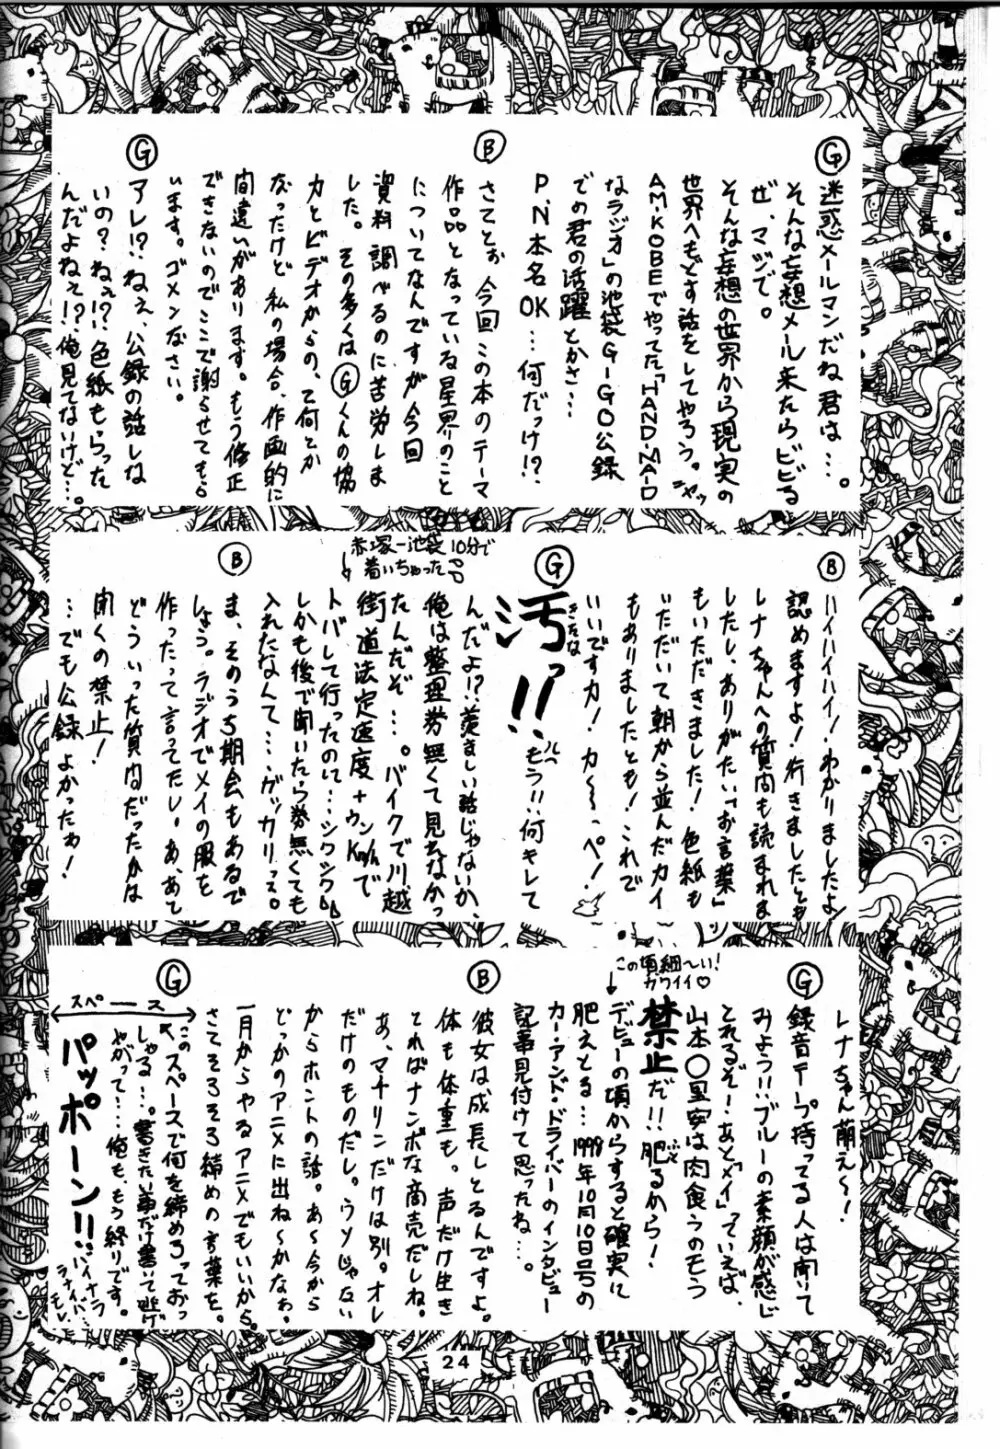 G
迷惑メールマンだね君は…。
そんな妄想メール来たらビビる
ぜ、マジで。
そんな妄想の世界から現実の
世界へもどす話をしてやろう。ニヤッ
AM・KOBEでやってた「HAND-MAID
なラジオ」の池袋G-GO公録
での君の活躍とかさ…
P.N.本名OK…何だっけ!?
B
さてとぉ、今回この本のテーマ
作品となっている星界のこと
についてなんですが今回
資料調べるのに苦労しま
した。その多くはGくんの協
力とビデオからの、で何とか
なったけど私の場合、作画的に
間違いがあります。もう修正
できないのでここで謝らせてもら
います。ゴメンなさい。
G
アレ!?ねぇ、公録の話しな
いの?ねぇ!?色紙もらった
んだよねぇ!?俺見てないけど…。
B
ハイハイハイ!わかりましたよ!
認めますよ!行きましたとも!
レナちゃんへの質問も読まれま
したし、ありがたい、"お言葉"
もいただきました!色紙も
いただいて朝から並んだカイ
もありましたとも!これで
いいですカ!カ〜〜、ペ!
G
汚っ!!
きたな
もう!!何キレて
んだよ!?羨ましい話じゃないか、
俺は整理券無くて見れなかっ
たんだぞ…。バイクで川越
街道法定速度+ウンKm/hで
トバして行ったのに…シクシク
しかも後で聞いたら券無くても
入れたなんて…ガッカリっス。
赤塚-池袋10分で
着いちゃった
B
ま、そのうち期会もあるで
しょう。ラジオでメイの服を
作ったって言ってたし。あ、あと
どういった質問だったかは
聞くの禁止!
…でも公録よかったわ!
レナちゃん萌え〜!
G
録音テープ持ってる人は聞いて
みよう!!ブルーの素顔が感じ
とれるぞ!あと"メイ"っていえば、
山本〇里安は肉食うのもう
禁止だ!!肥るから!
デビューの頃からすると確実に
肥えとる…1998年10月10日号の
カー・アンド・ドライバーのインタビュー
記事見付けて思ったね…。
この頃細〜い!
カワイイ♡
B
彼女は成長しとるんですよ。
体も体重も。声だけ生き
とればナンボな商売だしね。
あ、マチリンだけは別。オレ
だけのものだし。ウソじゃない
からホントの話。あ〜今から
どっかのアニメに出ね〜かなぁ。
一月からやるアニメでもいいから。
さてそろそろ締めの言葉を。
G
スペース
このスペースで何を締めろっておっ
しゃる…。書きたい事だけ書いて逃げ
やがって…。俺も、もう終りです。
パッポーン!!
24